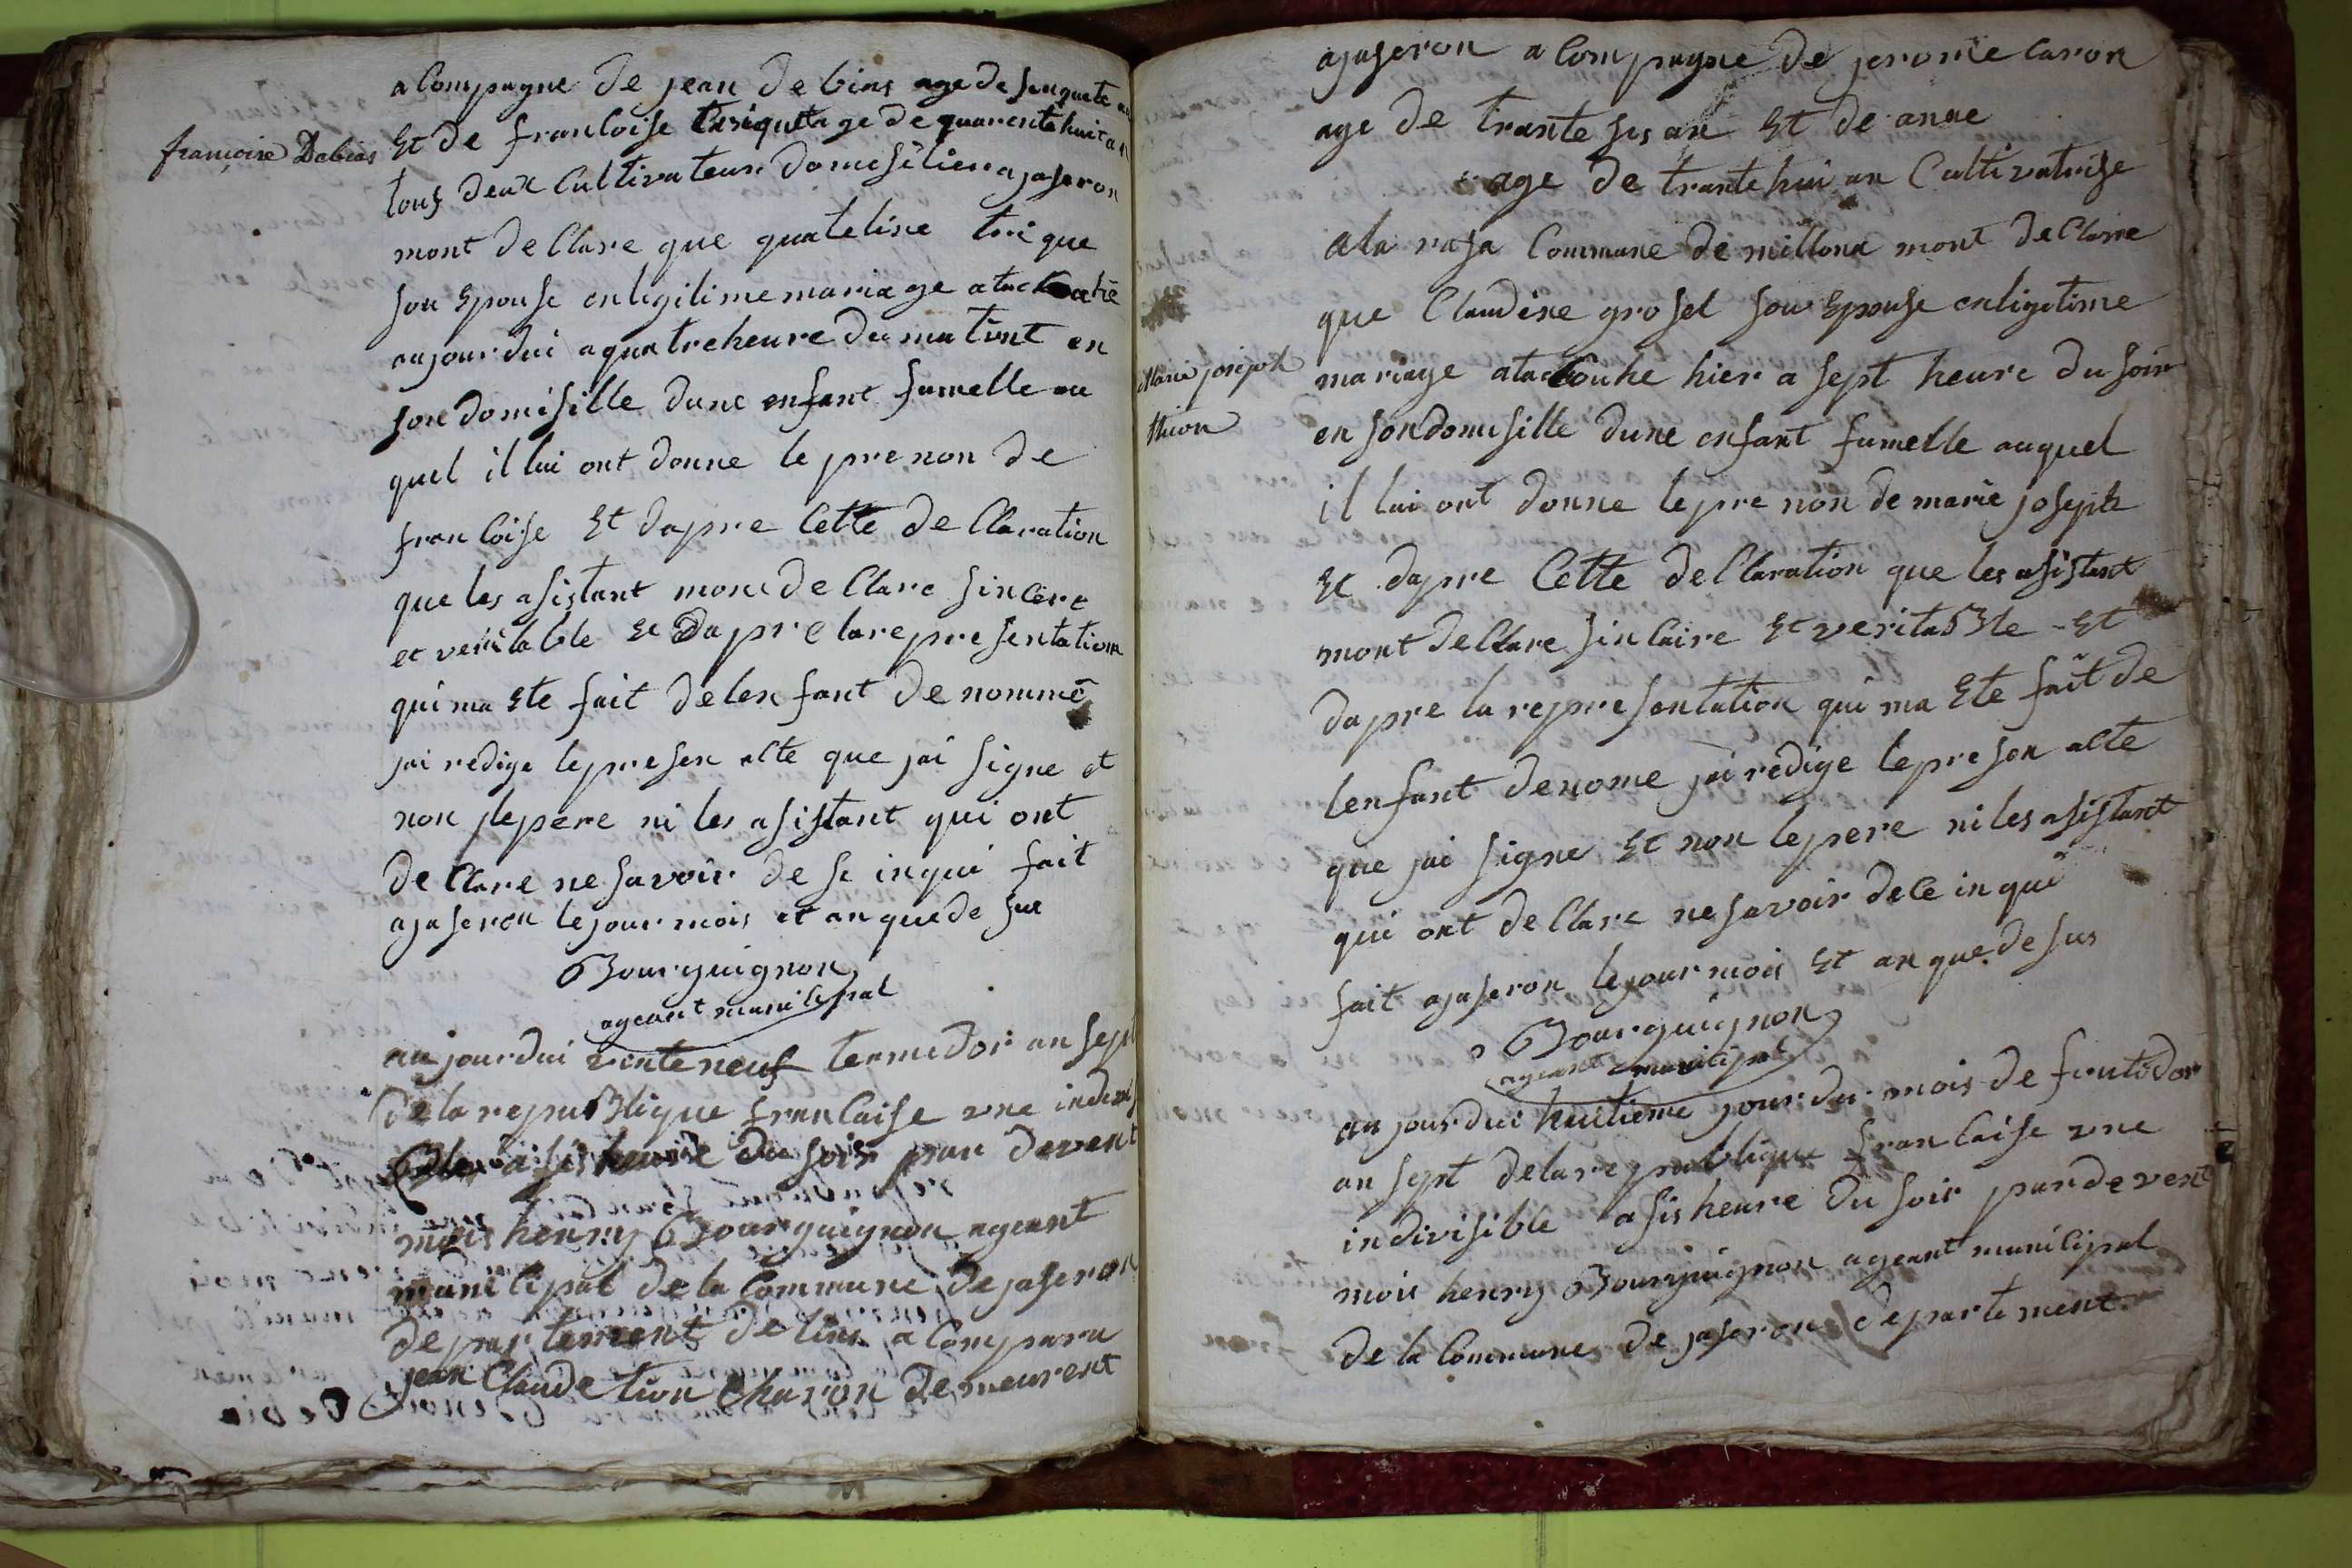 françoise Debias
a Compagne de jean de bias age de senquente an
Et de francoise triquet age de quarente huit an
tous deux Cultivateur domisilier a jaseron
mont declare que quateline trique
sou Epouse enligitime mariage atacouche
aujourdui a quatre heure du matint en
son domisille dune enfant fumelle au
quel il lui ont donne le prenon de
francoise Et dapre Cette declaration
que les asistant mon declare sincere
et veritable Et dapre la representation
qui ma Ete fait delenfant denommé
jai redige lepresen alte que jai signe et
non lepere ni les asistant qui ont
declare ne savoir de se inqui fait
ajaseron lejour mois et an que de sus
Bourguignon
ageant municipal
aujourdui vinteneuf termedor an sept
de la republique francaise une indivis
Ble a sis heure du soir par devent
mois henry Bourguignon ageant
municipal de la Commune de jaseron
departement de lins a Comparu
jean Claude tion Charon demeurent
ajaseron a Compagne de jerome Caron
age de trante sis an Et de anne
age de trante hui an Cultivatrise
ala rasa Commune de millona mont declare
que Claudine grosel sou Epouse enligitime
Marie joseph
thion
mariage atacouhe hier a sept heure du soir
en son domisille dune enfant fumelle auquel
il lui ont donne lepre non de marie joseph
Et dapre Cette declaration que les asistant
mont declare sinlaire Et veritaBle - Et
dapre la representation qui ma Ete fait de
lenfant denome jai redige lepreson alte
que jai signe Et non lepere ni les asistant
qui ont declare ne savoir dece in qui
fait ajaseron lejour mois Et an que desus
Bourguignon
ageant municipal
aujourdui huitieme jour du mois de frutidor
an sept de la republique francaise une
indivisible a sis heure du soir pardevent
mois henry Bourguignon ageant municipal
de la Commune de jaseron departement